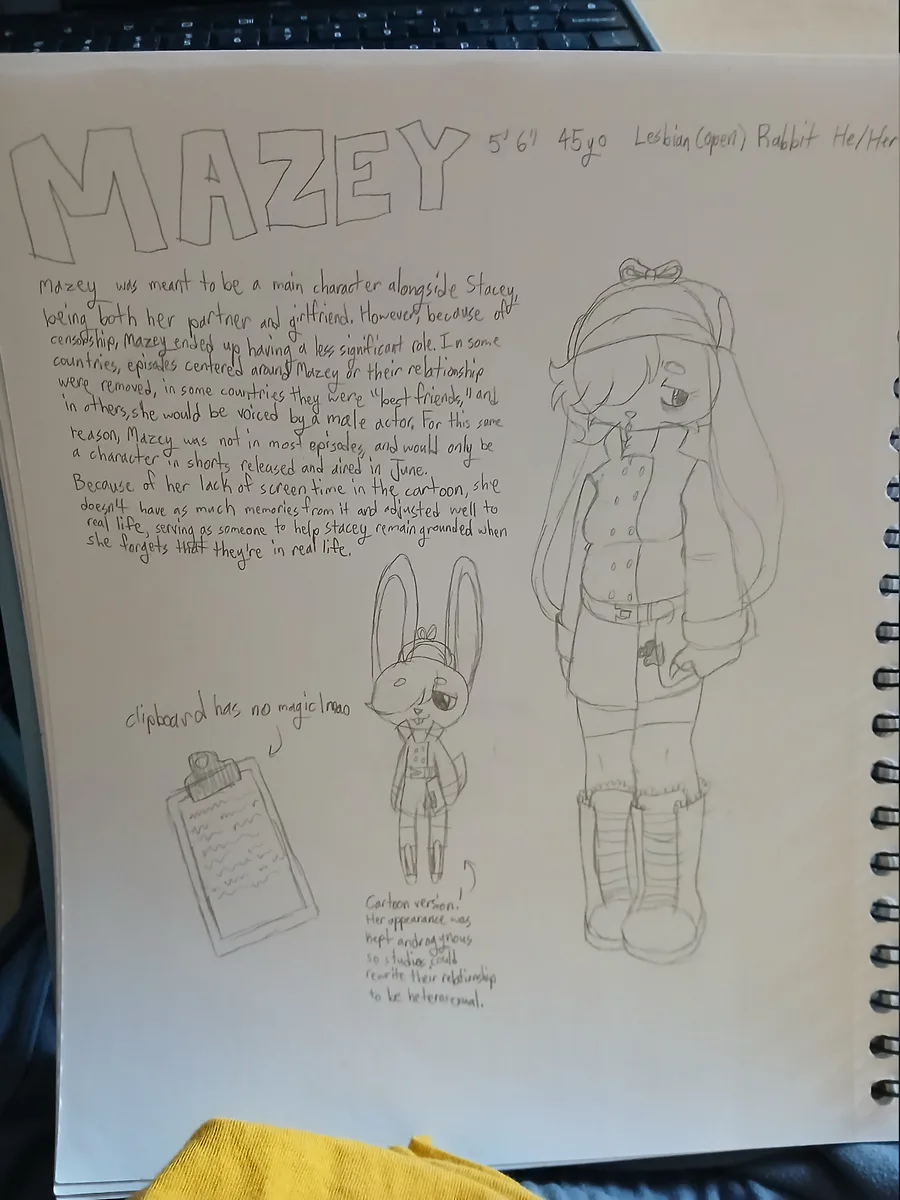 MAZEY 5' 6" 45yo Lesbian (open) Rabbit He/Her
Mazey was meant to be a main character alongside Stacey,
being both her partner and girlfriend. However, because of
censorship, Mazey ended up having a less significant role. In some
countries, episodes centered around Mazey or their relationship
were removed, in some countries they were "best friends," and
in others, she would be voiced by a male actor. For this same
reason, Mazey was not in most episodes, and would only be
a character in shorts released and aired in June.
Because of her lack of screen time in the cartoon, she
doesn't have as much memories from it and adjusted well to
real life, serving as someone to help Stacey remain grounded when
she forgets that they're in real life.
clipboard has no magic lmao
Cartoon version!
Her appearance was
kept androgynous
so studios could
rewrite their relationship
to be heterosexual.